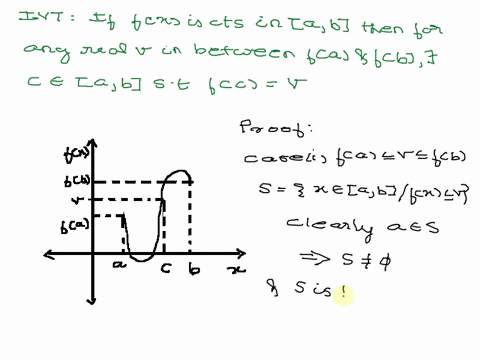 IVT: If f(x) is cts in [a,b] then for
any real v in between f(a) & f(b), ∃
c ∈ [a,b] s.t f(c) = v
Proof:
case(i) f(a) ≤ v ≤ f(b)
S = { x ∈ [a,b] / f(x) ≤ v}
clearly a ∈ S
⇒ S ≠ φ
& S is
f(x)
f(b)
v
f(a)
a c b x